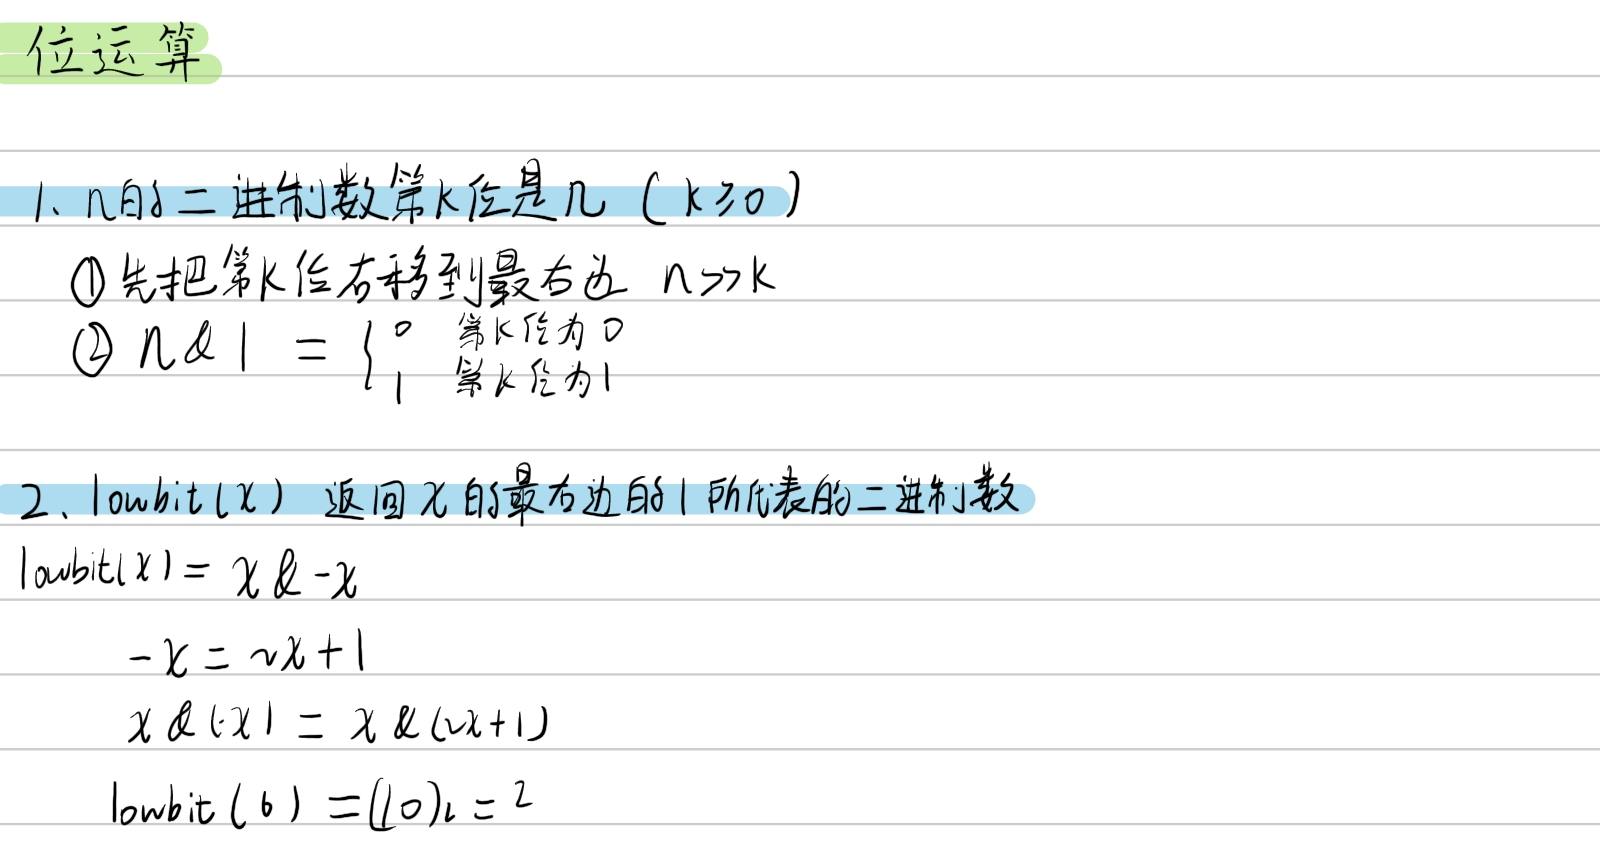 位运算
1、n的二进制数第k位是几 (k≥0)
①先把第k位右移到最右边 n>>k
② n & 1 = { 0 第k位为0
1 第k位为1
2、lowbit(x) 返回x的最右边的1所代表的二进制数
lowbit(x) = x & -x
-x = ~x+1
x & (-x) = x & (~x+1)
lowbit(6) = (10)₂ = 2